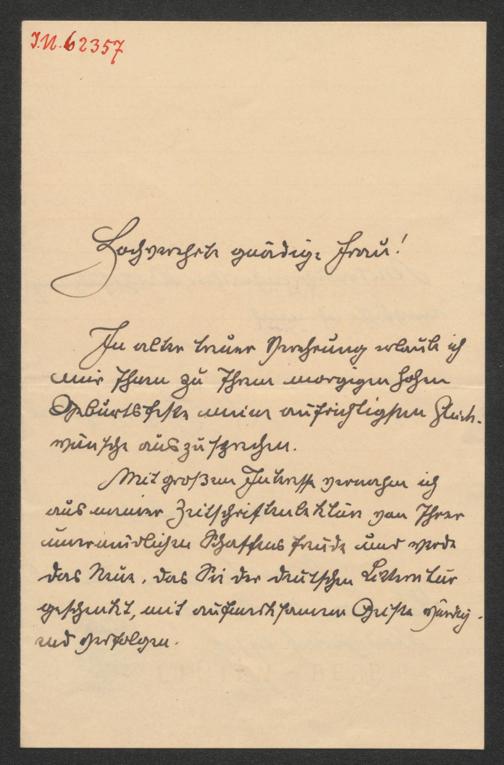 I.N. 62357
Hochverehrte gnädige Frau!
In alter treuer Verehrung erlaube ich
mir Ihnen zu Ihrem morgigen hohen
Geburtsfeste meine aufrichtigsten Glück-
wünsche auszusprechen.
Mit großem Interesse vernahm ich
aus meiner Zeitschriftenlektüre von Ihrer
unermüdlichen Schaffensfreude und werde
das Neue, das Sie der deutschen Litteratur
geschenkt, mit aufmerksamem Geiste
und verfolgen.